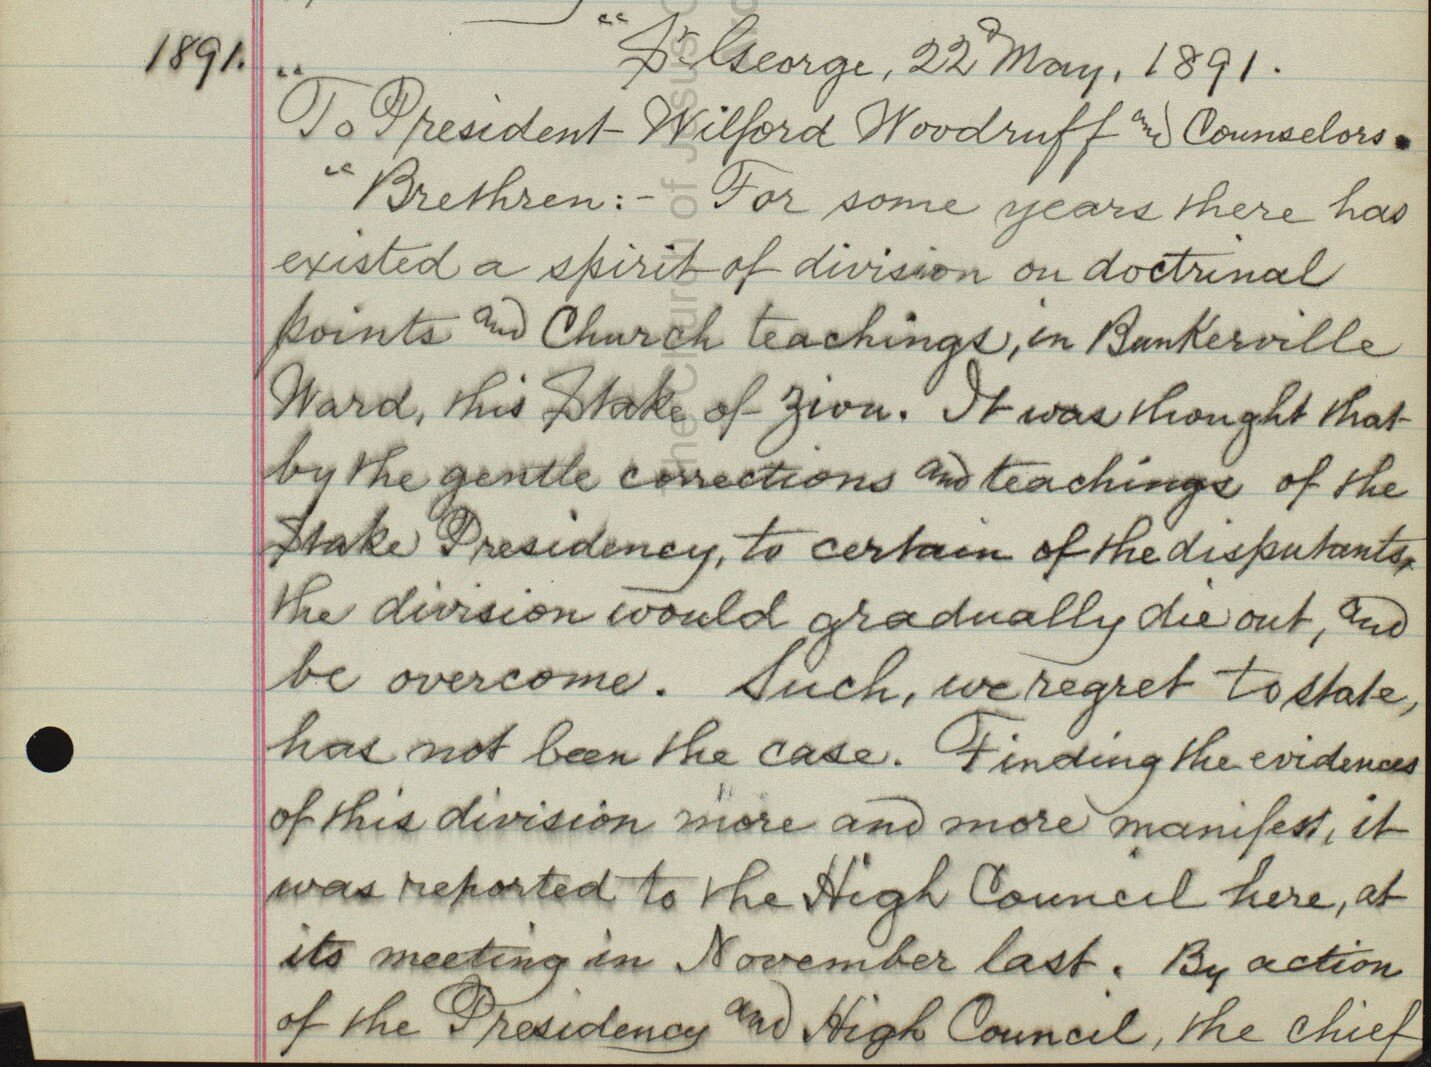 "St George, 22d May, 1891.
1891. "
To President Wilford Woodruff and Counselors.
"Brethren:- For some years there has
existed a spirit of division on doctrinal
points and Church teachings, in Bunkerville
Ward, this Stake of Zion. It was thought that
by the gentle corrections and teachings of the
Stake Presidency, to certain of the disputants,
the division would gradually die out, and
be overcome. Such, we regret to state,
has not been the case. Finding the evidences
of this division more and more manifest, it
was reported to the High Council here, at
its meeting in November last. By action
of the Presidency and High Council, the chief